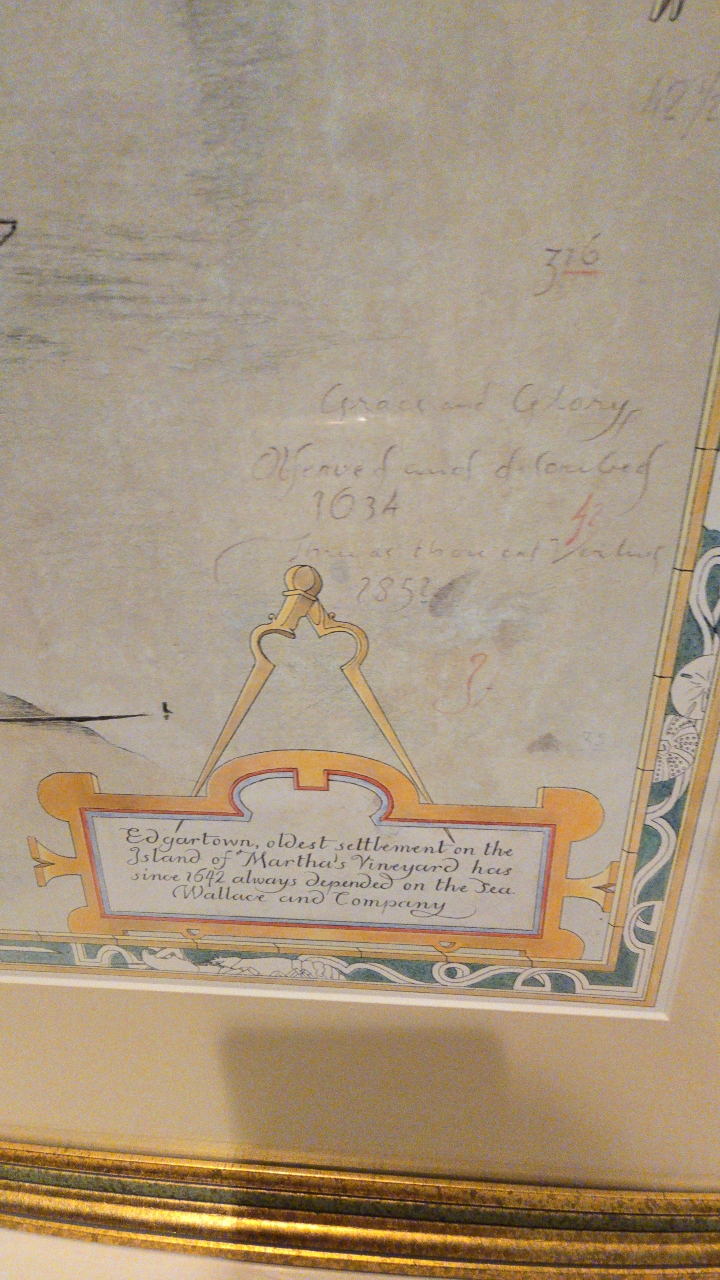 316
Grace and Glory
Observed and described
1634
42
Thou as thou
185
Edgartown, oldest settlement on the
Island of Martha's Vineyard has
since 1642 always depended on the Sea.
Wallace and Company